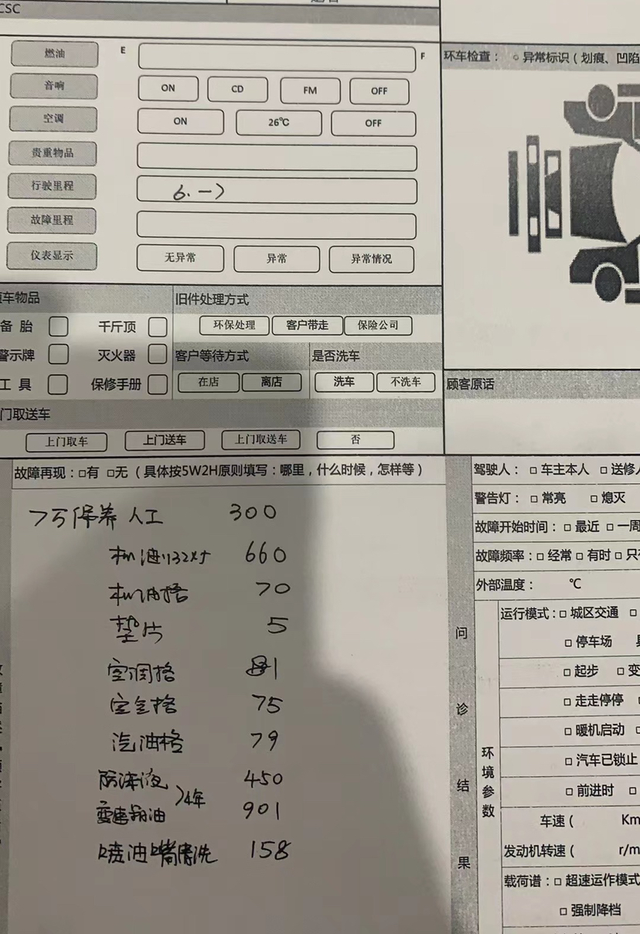 CSC
燃油 E F
音响 ON CD FM OFF
空调 ON 26℃ OFF
贵重物品
行驶里程 6.一)
故障里程
仪表显示 无异常 异常 异常情况
环车检查: 异常标识(划痕、凹陷
车物品
备胎 千斤顶
警示牌 灭火器
工具 保修手册
旧件处理方式
环保处理 客户带走 保险公司
客户等待方式 是否洗车
在店 离店 洗车 不洗车
门取送车
上门取车 上门送车 上门取送车 否
顾客原话
故障再现:□有 □无(具体按5W2H原则填写:哪里,什么时候,怎样等)
7万保养人工 300
机油 660
机油格 70
垫片 5
空调格 81
空气格 75
汽油格 79
防冻液 450
4年
变速箱油 901
喷油嘴清洗 158
问诊结果
驾驶人:□车主本人 □送修人
警告灯:□常亮 □熄灭
故障开始时间:□最近 □一周
故障频率:□经常 □有时 □只有
外部温度: ℃
环境参数
运行模式:□城区交通 □
□停车场
□起步 □变
□走走停停 □
□暖机启动 □
□汽车已锁止
□前进时 □
车速( Km
发动机转速( r/m
载荷谱:□超速运作模式
□强制降档